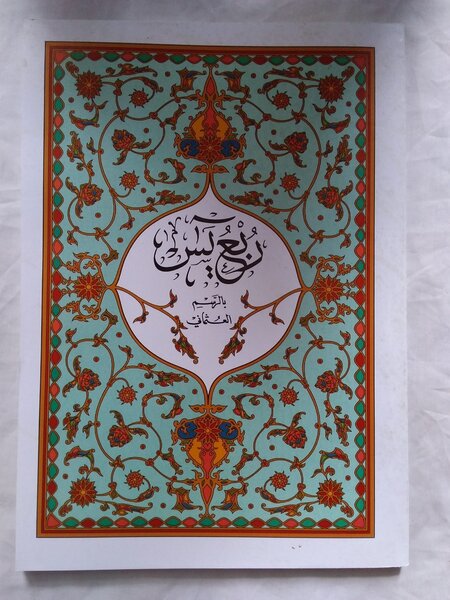 رُبْعُ يٰسٓ
بالرَّسْمِ
العُثمَانِي